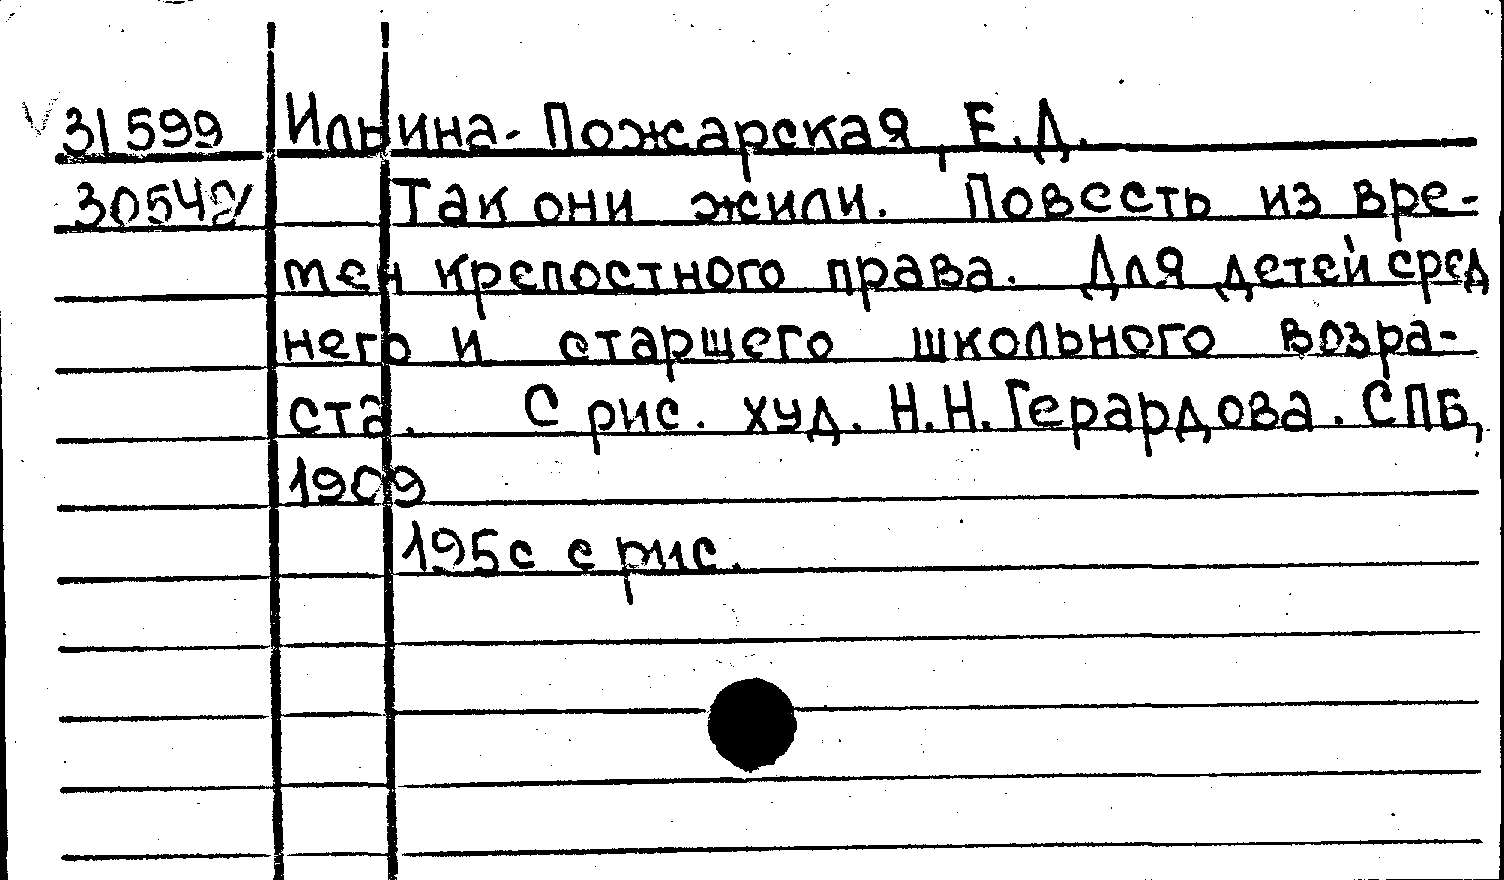 31599 Ильина-Пожарская, Е.Д.
30542 Так они жили. Повесть из вре-
мен крепостного права. Для детей сред
него и старшего школьного возра-
ста. С рис. худ. Н.Н. Герардова. СПБ,
1909
195с с рис.